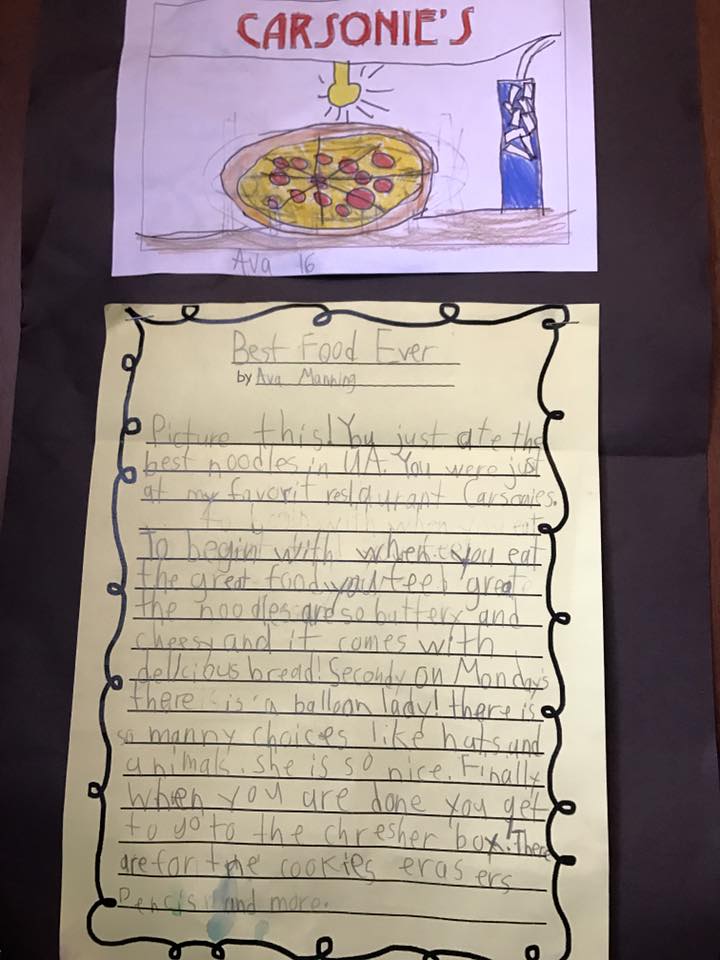 CARSONIE'S
Ava 16
Best Food Ever
by Ava Manning
Picture this! You just ate the
best noodles in UA. You were just
at my favorit restaurant Carsonies.
To begin with when you eat
To begin with when you eat
the great food you feel great
the noodles are so buttery and
cheesy and it comes with
delicious bread! Secondy on Monday's
there is a balloon lady! there is
so manny choices like hats and
animals. She is so nice. Finally
when you are done you get
to go to the chresher box! There
are for the cookies erasers
Pencils and more.